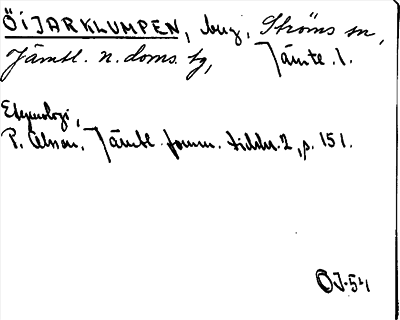 ÖIJARKLUMPEN, bg, Ströms sn,
Jämtl. n. doms. tg, Jämtl. l.
Etymologi,
P. Olsson, Jämtl. fornm. tidskr. 2, s. 151.
OJ-54